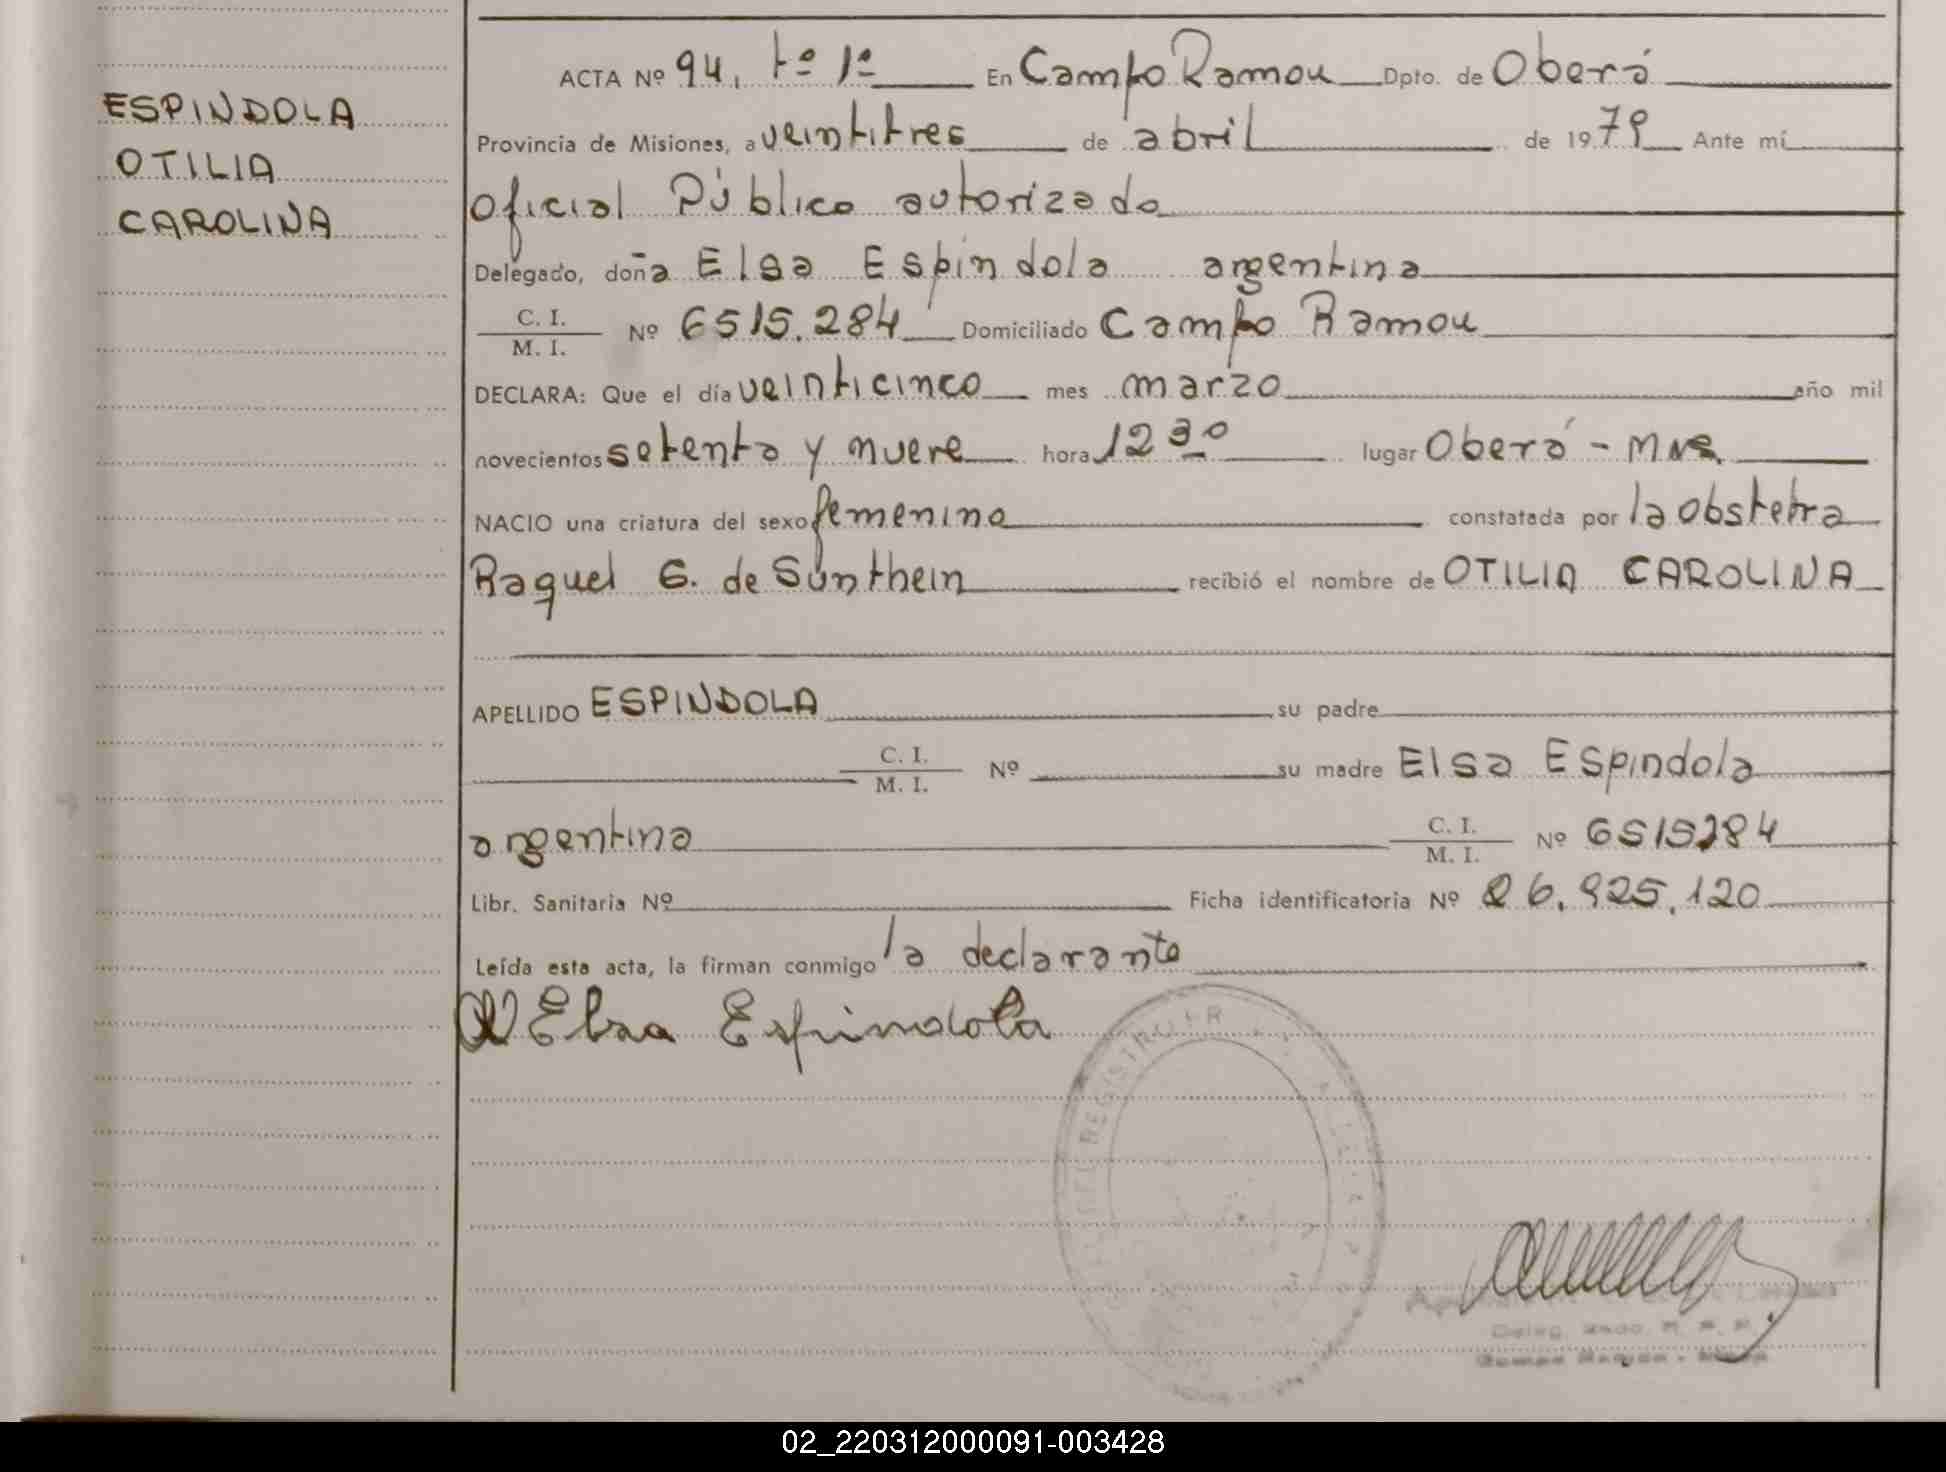 ESPINDOLA
OTILIA
CAROLINA
ACTA Nº 94, tº 1º En Campo Ramou Dpto. de Oberá
Provincia de Misiones, a veintitres de abril de 1979 Ante mí
Oficial Público autorizado
Delegado, doña Elsa Espindola argentina
C. I.
M. I. Nº 6515.284 Domiciliado Campo Ramou
DECLARA: Que el día veinticinco mes marzo año mil
novecientos setenta y nueve hora 12 30 lugar Oberá - Mns.
NACIO una criatura del sexo femenino constatada por la obstetra
Raquel G. de Sünthein recibió el nombre de OTILIA CAROLINA
APELLIDO ESPINDOLA su padre
C. I.
M. I. Nº su madre Elsa Espindola
argentina C. I.
M. I. Nº 6515284
Libr. Sanitaria Nº Ficha identificatoria Nº 26.925.120
Leída esta acta, la firman conmigo la declarante
Elsa Espindola
REGISTRO
02_220312000091-003428